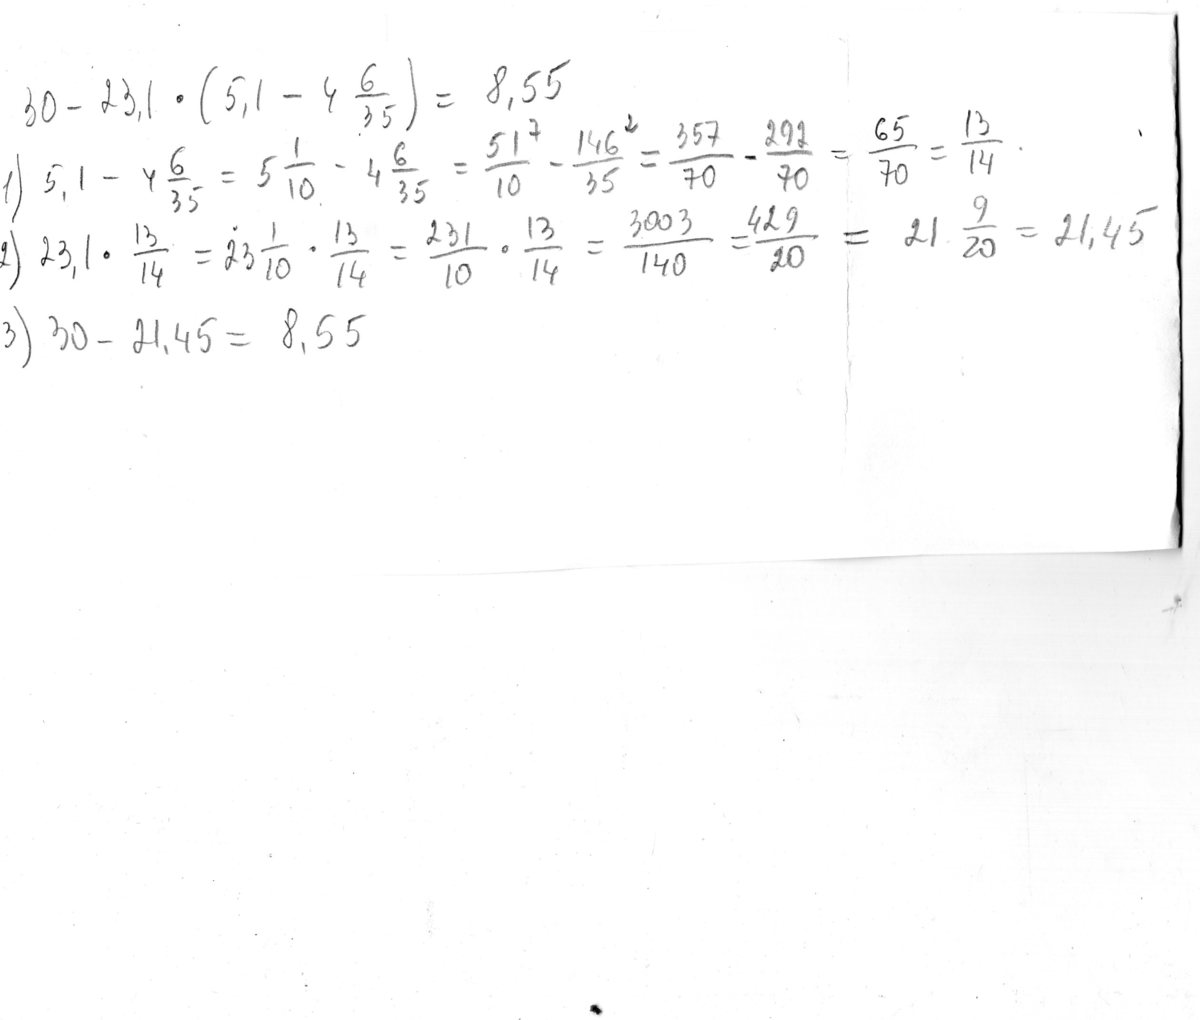 30 - 23,1 · (5,1 - 4 6/35) = 8,55
1) 5,1 - 4 6/35 = 5 1/10 - 4 6/35 = 51⁷/10 - 146²/35 = 357/70 - 292/70 = 65/70 = 13/14
2) 23,1 · 13/14 = 23 1/10 · 13/14 = 231/10 · 13/14 = 3003/140 = 429/20 = 21 9/20 = 21,45
3) 30 - 21,45 = 8,55